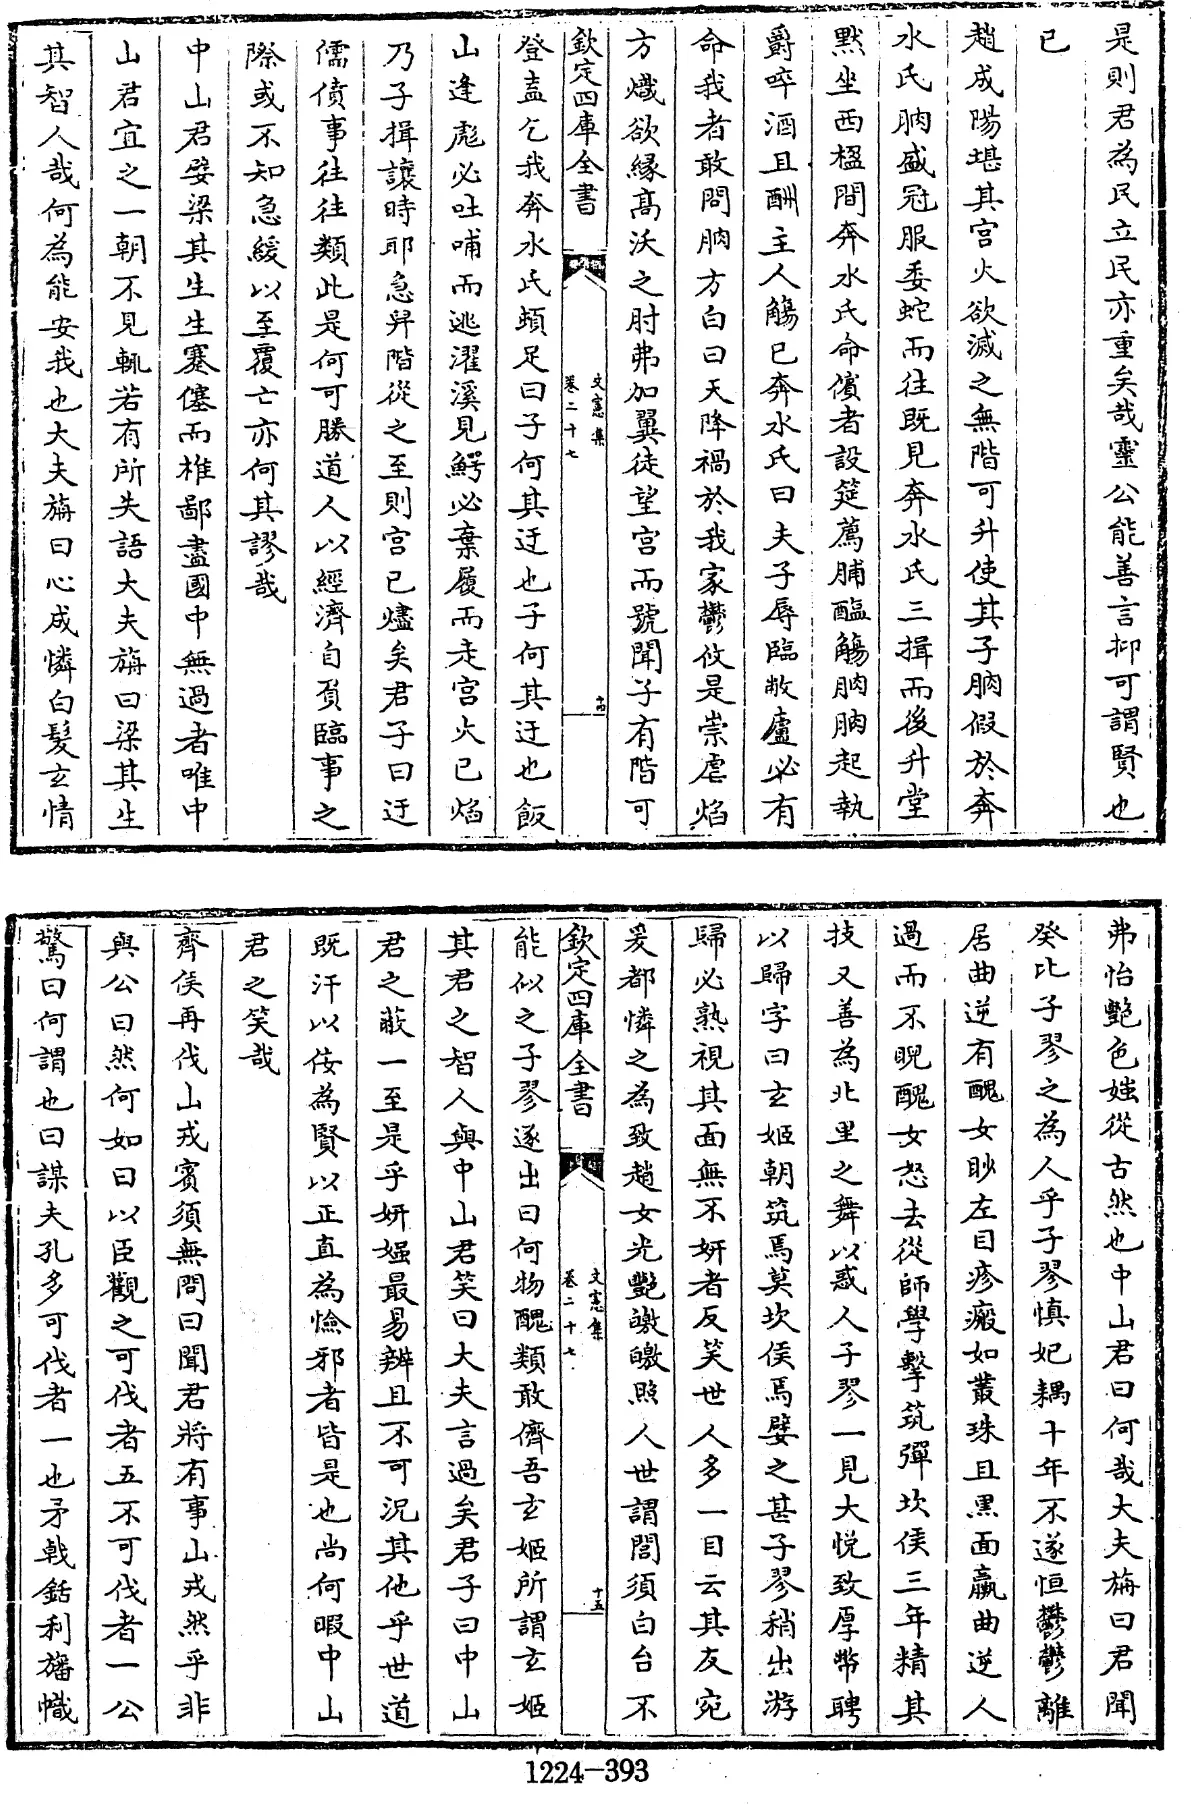 是則君為民立民亦重矣哉靈公能善言抑可謂賢也
已
趙成陽堪其宫火欲滅之無階可升使其子朒假於奔
水氏朒盛冠服委蛇而往既見奔水氏三揖而後升堂
默坐西楹間奔水氏命儐者設筵薦脯醢觴朒朒起執
爵啐酒且酬主人觴已奔水氏曰夫子辱臨敝廬必有
命我者敢問朒方白曰天降禍於我家鬱攸是崇虐焰
方熾欲縁髙沃之肘弗加翼徒望宫而號聞子有階可
欽定四庫全書
文憲集
卷二十七
十四
登盍乞我奔水氏頓足曰子何其迂也子何其迂也飯
山逢彪必吐哺而逃濯溪見鰐必棄履而走宫火已焰
乃子揖讓時耶急舁階從之至則宫已燼矣君子曰迂
儒僨事往往類此是何可勝道人以經濟自負臨事之
際或不知急緩以至覆亡亦何其謬哉
中山君嬖梁其生生蹇僿而椎鄙盡國中無過者唯中
山君宜之一朝不見輒若有所失語大夫旃曰梁其生
其智人哉何為能安我也大夫旃曰心成憐白髮玄情
弗怡艶色媸從古然也中山君曰何哉大夫旃曰君聞
癸比子翏之為人乎子翏慎妃耦十年不遂恒鬱鬱離
居曲逆有醜女眇左目疹瘢如叢珠且黑面羸曲逆人
過而不睨醜女怒去從師學擊筑彈坎侯三年精其
技又善為北里之舞以惑人子翏一見大悦致厚幣聘
以歸字曰玄姬朝筑焉莫坎侯焉嬖之甚子翏稍出游
歸必熟視其面無不妍者反笑世人多一目云其友宛
爰都憐之為致趙女光艷皦皦照人世謂閭須白台不
欽定四庫全書
文憲集
卷二十七
十五
能似之子翏逐出曰何物醜類敢儕吾玄姬所謂玄姬
其君之智人與中山君笑曰大夫言過矣君子曰中山
君之蔽一至是乎妍媸最易辨且不可況其他乎世道
既汙以佞為賢以正直為憸邪者皆是也尚何暇中山
君之笑哉
齊侯再伐山戎賓須無問曰聞君將有事山戎然乎非
與公曰然何如曰以臣觀之可伐者五不可伐者一公
驚曰何謂也曰謀夫孔多可伐者一也矛戟銛利旛幟
1224—393